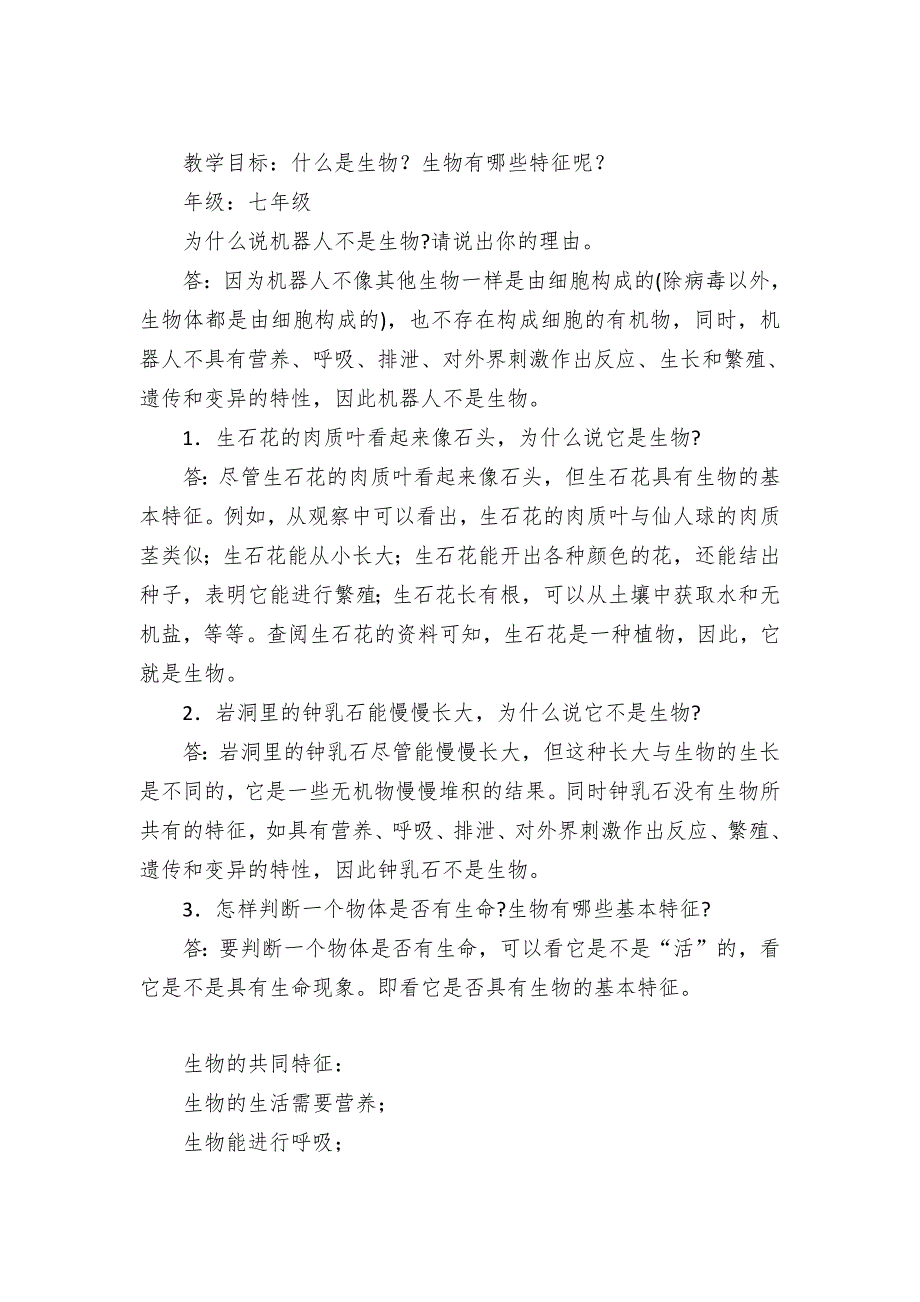 教学目标：什么是生物？生物有哪些特征呢？
年级：七年级
为什么说机器人不是生物?请说出你的理由。
答：因为机器人不像其他生物一样是由细胞构成的(除病毒以外，
生物体都是由细胞构成的)，也不存在构成细胞的有机物，同时，机
器人不具有营养、呼吸、排泄、对外界刺激作出反应、生长和繁殖、
遗传和变异的特性，因此机器人不是生物。
1．生石花的肉质叶看起来像石头，为什么说它是生物?
答：尽管生石花的肉质叶看起来像石头，但生石花具有生物的基
本特征。例如，从观察中可以看出，生石花的肉质叶与仙人球的肉质
茎类似；生石花能从小长大；生石花能开出各种颜色的花，还能结出
种子，表明它能进行繁殖；生石花长有根，可以从土壤中获取水和无
机盐，等等。查阅生石花的资料可知，生石花是一种植物，因此，它
就是生物。
2．岩洞里的钟乳石能慢慢长大，为什么说它不是生物?
答：岩洞里的钟乳石尽管能慢慢长大，但这种长大与生物的生长
是不同的，它是一些无机物慢慢堆积的结果。同时钟乳石没有生物所
共有的特征，如具有营养、呼吸、排泄、对外界刺激作出反应、繁殖、
遗传和变异的特性，因此钟乳石不是生物。
3．怎样判断一个物体是否有生命?生物有哪些基本特征?
答：要判断一个物体是否有生命，可以看它是不是“活”的，看
它是不是具有生命现象。即看它是否具有生物的基本特征。
生物的共同特征：
生物的生活需要营养；
生物能进行呼吸；